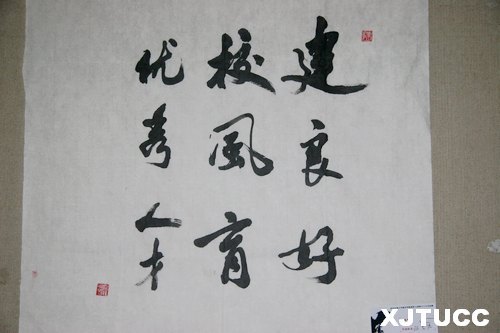 建良好
校風育
优秀人才
XJTUCC